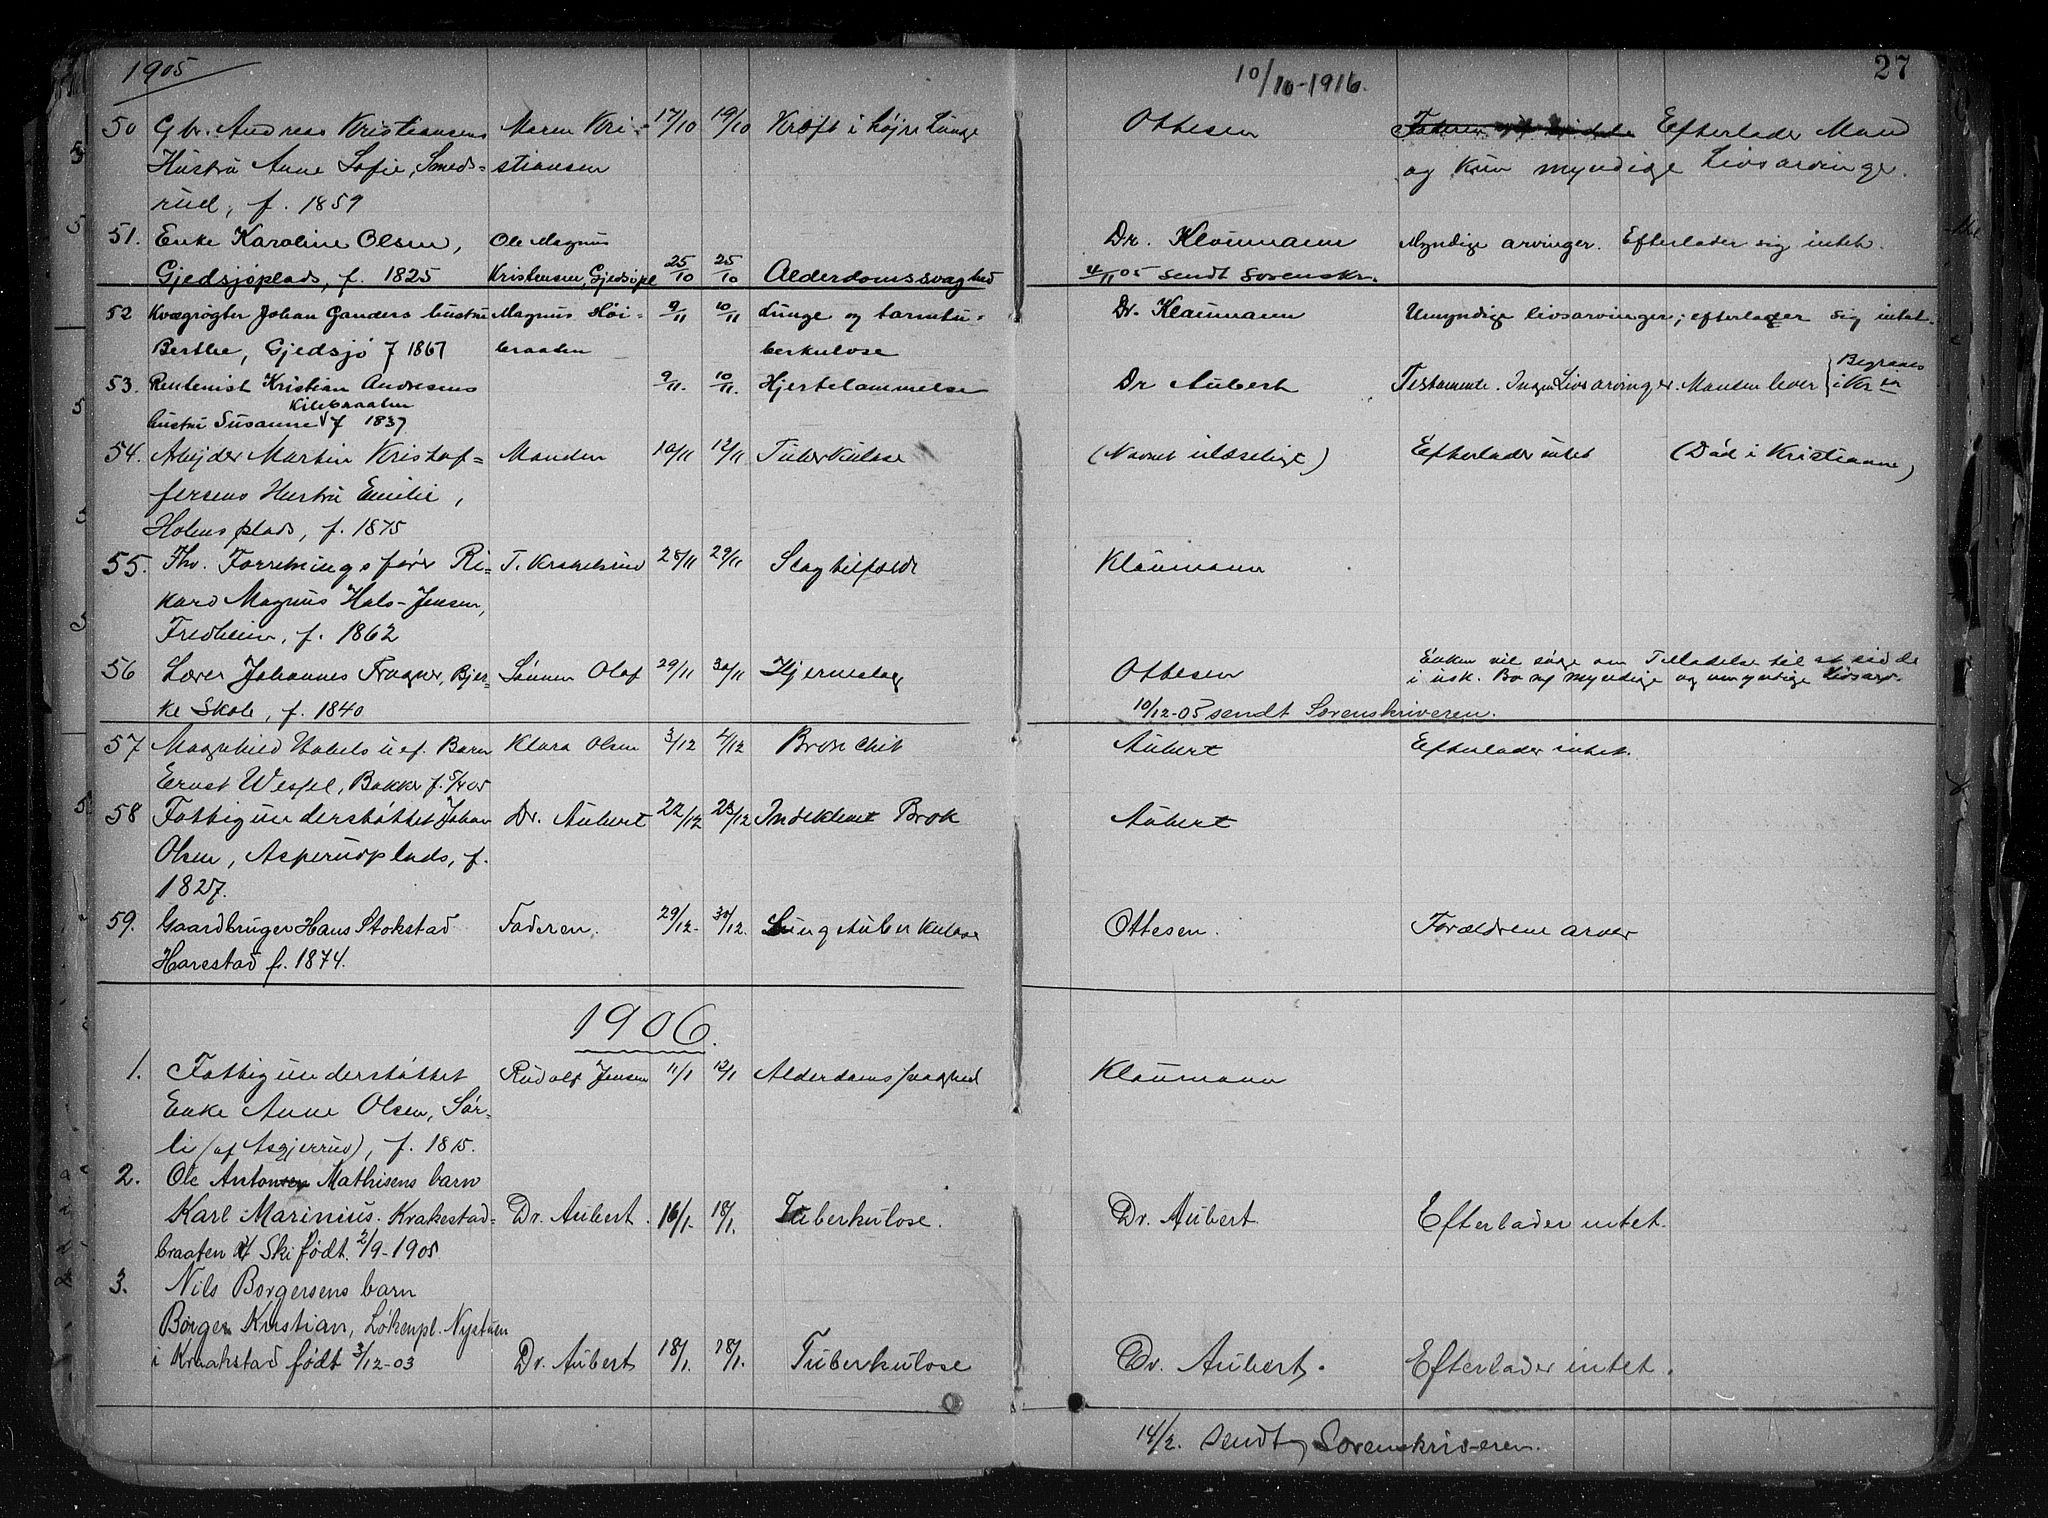 1905
10/10-1916.
27
50 Gbr. Andreas Kristiansens Maren Kri- 17/10 19/10 Kræft i højre Lunge Ottesen Efterlader Mand
Hustru Anne Sofie, Smeds- stiansen og kun myndige Livsarvinger.
rud, f. 1859
51. Enke Karoline Olsen, Ole Magnus Dr. Klaumann Myndige arvinger. Efterlader sig intet.
Gjedsjøplads, f. 1825 Kristensen, Gjedsjøpl 25/10 25/10 Alderdomssvaghed 4/11 05 sendt Sorenskr.
52 Kvægrøgter Johan Ganders hustru Magnus Høi- 9/11 10/11 Lunge og tarmtu- Dr. Klaumann Umyndige livsarvinger; efterlader sig intet.
Berthe, Gjedsjø f 1867 braaten berkulose
53. Rentenist Kristian Andresens 9/11. 10/11. Hjertelammelse Dr Aubert Testamente. Ingen Livsarvinger. Manden lever { Begraves i Kr.a
Kilebraaten
hustru Susanne f 1837
54. Arbejder Martin Kristof- Manden 10/11 12/11 Tuberkulose (Navnet ulæselige) Efterlader intet (Død i Kristiania)
fersens Hustru Emilie,
Holens plads, f. 1875
55. Fhv. Forretningsfører Ri- T. Krakelsrud 28/11 29/11 Slagtilfælde Klaumann
kard Magnus Hals-Jensen,
Fredheim, f. 1862
56 Lærer Johannes Frogner, Bjer- Sønnen Olaf 29/11 30/11 Hjerneslag Ottesen Enken vil søge om Tilladelse til at sidde
i usk. Bo m/ myndige og umyndige Livsarv.
ke Skole, f. 1840 10/12-05 sendt Sorenskriveren.
57 Magnhild Hobels u.ef. Barn Klara Olsen 3/12 4/12 Bronchit Aubert Efterlader intet.
Ernst Wessel, Bakke f. 5/4 05
58 Fattigunderstøttet Johan Dr. Aubert 22/12 23/12 Indeklemt Brok Aubert
Olsen, Asperudplads, f.
1827.
59. Gaardbruger Hans Stokstad Faderen. 29/12. 30/12. Lungetuberkulose Ottesen. Forældrene arver
Harestad f. 1874.
1906.
1. Fattigunderstøttet Rudolf Jensen 11/1 12/1 Alderdomssvaghed Klaumann
Enke Anne Olsen, Sør-
li (af Asgjerrud), f. 1815.
2. Ole Antonsen Mathisens barn
Karl Marinius. Krakestad- Dr. Aubert. 16/1. 18/1. Tuberkulose. Dr. Aubert Efterlader intet.
braaten af Ski født 2/9-1905
3. Nils Borgersens barn
Borger Kristian, Løkenpl. Nystuen
i Kraakstad født 3/12-03 Dr. Aubert 18/1. 28/1. Tuberkulose Dr. Aubert. Efterlader intet.
14/2. Sendt Sorenskriveren.